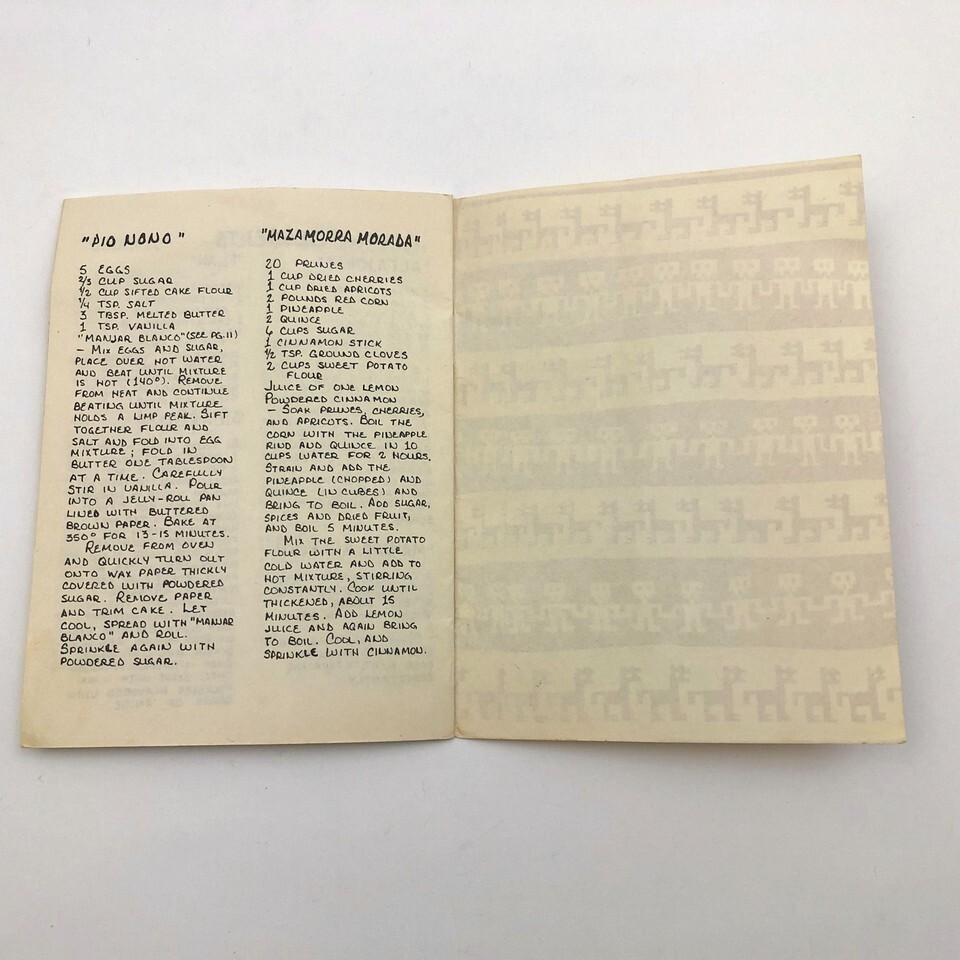 "PIO NONO"
5 EGGS
2/3 CUP SUGAR
1/2 CUP SIFTED CAKE FLOUR
1/4 TSP. SALT
3 TBSP. MELTED BUTTER
1 TSP. VANILLA
"MANJAR BLANCO" (SEE PG. 11)
- MIX EGGS AND SUGAR,
PLACE OVER HOT WATER
AND BEAT UNTIL MIXTURE
IS HOT (140°). REMOVE
FROM HEAT AND CONTINUE
BEATING UNTIL MIXTURE
HOLDS A LIMP PEAK. SIFT
TOGETHER FLOUR AND
SALT AND FOLD INTO EGG
MIXTURE; FOLD IN
BUTTER ONE TABLESPOON
AT A TIME. CAREFULLY
STIR IN VANILLA. POUR
INTO A JELLY-ROLL PAN
LINED WITH BUTTERED
BROWN PAPER. BAKE AT
350° FOR 13-15 MINUTES.
REMOVE FROM OVEN
AND QUICKLY TURN OUT
ONTO WAX PAPER THICKLY
COVERED WITH POWDERED
SUGAR. REMOVE PAPER
AND TRIM CAKE. LET
COOL, SPREAD WITH "MANJAR
BLANCO" AND ROLL.
SPRINKLE AGAIN WITH
POWDERED SUGAR.
"MAZAMORRA MORADA"
20 PRUNES
1 CUP DRIED CHERRIES
1 CUP DRIED APRICOTS
2 POUNDS RED CORN
1 PINEAPPLE
2 QUINCE
4 CUPS SUGAR
1 CINNAMON STICK
1/2 TSP. GROUND CLOVES
2 CUPS SWEET POTATO
FLOUR
JUICE OF ONE LEMON
POWDERED CINNAMON
- SOAK PRUNES, CHERRIES,
AND APRICOTS. BOIL THE
CORN WITH THE PINEAPPLE
RIND AND QUINCE IN 10
CUPS WATER FOR 2 HOURS.
STRAIN AND ADD THE
PINEAPPLE (CHOPPED) AND
QUINCE (IN CUBES) AND
BRING TO BOIL. ADD SUGAR,
SPICES AND DRIED FRUIT,
AND BOIL 5 MINUTES.
MIX THE SWEET POTATO
FLOUR WITH A LITTLE
COLD WATER AND ADD TO
HOT MIXTURE, STIRRING
CONSTANTLY. COOK UNTIL
THICKENED, ABOUT 15
MINUTES. ADD LEMON
JUICE AND AGAIN BRING
TO BOIL. COOL, AND
SPRINKLE WITH CINNAMON.